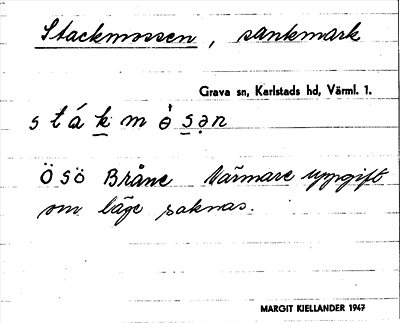 Stackmossen, sankmark
Grava sn, Karlstads hd, Värml. 1.
s t á k m ò s ə n
Ö S Ö Bråne Närmare uppgift
om läge saknas.
MARGIT KIELLANDER 1947